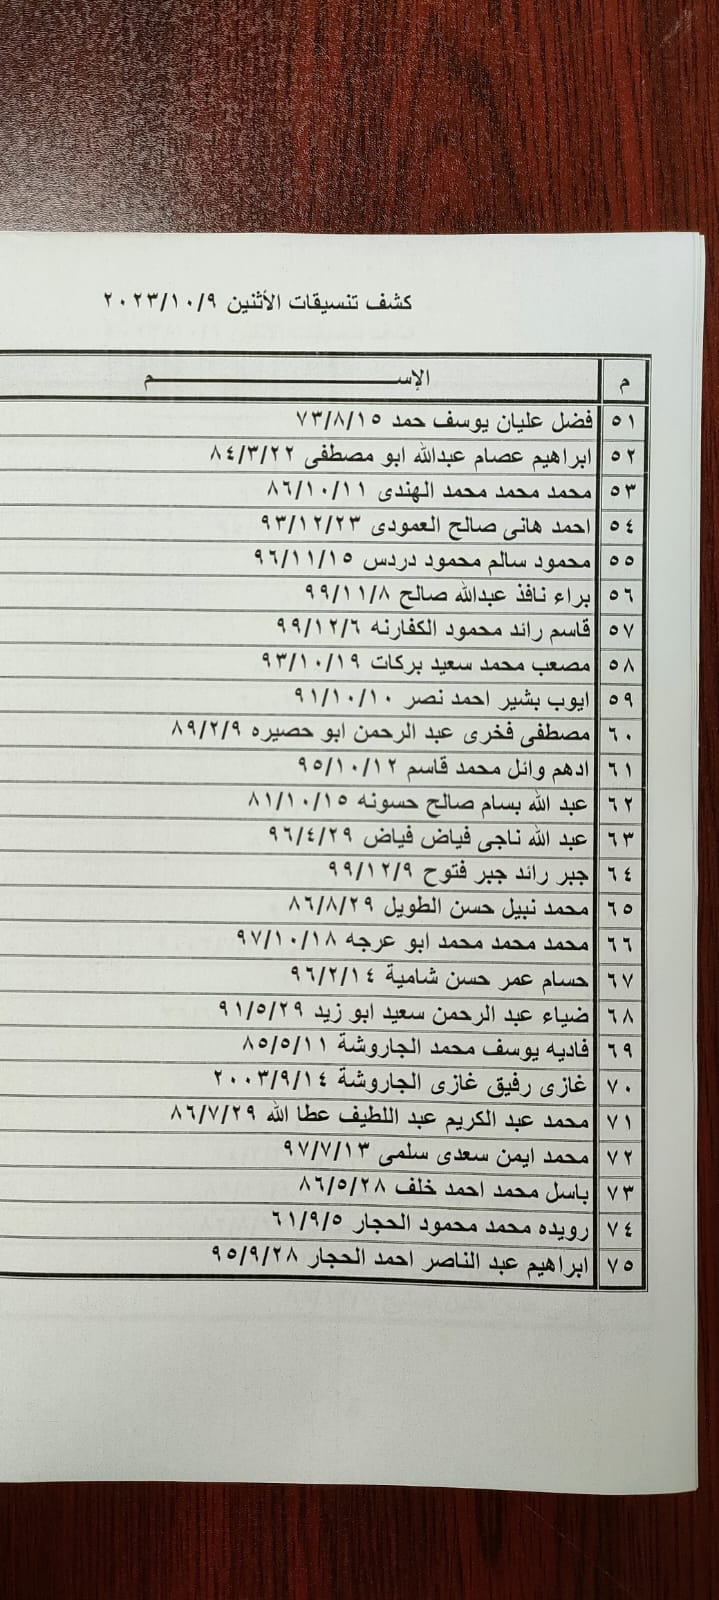 كشف تنسيقات الأثنين ٢٠٢٣/١٠/٩
م الإســـــــــــــــم
٥١ فضل عليان يوسف حمد ٧٣/٨/١٥
٥٢ ابراهيم عصام عبدالله ابو مصطفى ٨٤/٣/٢٢
٥٣ محمد محمد محمد الهندى ٨٦/١٠/١١
٥٤ احمد هانى صالح العمودى ٩٣/١٢/٢٣
٥٥ محمود سالم محمود دردس ٩٦/١١/١٥
٥٦ براء نافذ عبدالله صالح ٩٩/١١/٨
٥٧ قاسم رائد محمود الكفارنه ٩٩/١٢/٦
٥٨ مصعب محمد سعيد بركات ٩٣/١٠/١٩
٥٩ ايوب بشير احمد نصر ٩١/١٠/١٠
٦٠ مصطفى فخرى عبد الرحمن ابو حصيره ٨٩/٢/٩
٦١ ادهم وائل محمد قاسم ٩٥/١٠/١٢
٦٢ عبد الله بسام صالح حسونه ٨١/١٠/١٥
٦٣ عبد الله ناجى فياض فياض ٩٦/٤/٢٩
٦٤ جبر رائد جبر فتوح ٩٩/١٢/٩
٦٥ محمد نبيل حسن الطويل ٨٦/٨/٢٩
٦٦ محمد محمد محمد ابو عرجه ٩٧/١٠/١٨
٦٧ حسام عمر حسن شامية ٩٦/٢/١٤
٦٨ ضياء عبد الرحمن سعيد ابو زيد ٩١/٥/٢٩
٦٩ فاديه يوسف محمد الجاروشة ٨٥/٥/١١
٧٠ غازى رفيق غازى الجاروشة ٢٠٠٣/٩/١٤
٧١ محمد عبد الكريم عبد اللطيف عطا الله ٨٦/٧/٢٩
٧٢ محمد ايمن سعدى سلمى ٩٧/٧/١٣
٧٣ باسل محمد احمد خلف ٨٦/٥/٢٨
٧٤ رويده محمد محمود الحجار ٦١/٩/٥
٧٥ ابراهيم عبد الناصر احمد الحجار ٩٥/٩/٢٨